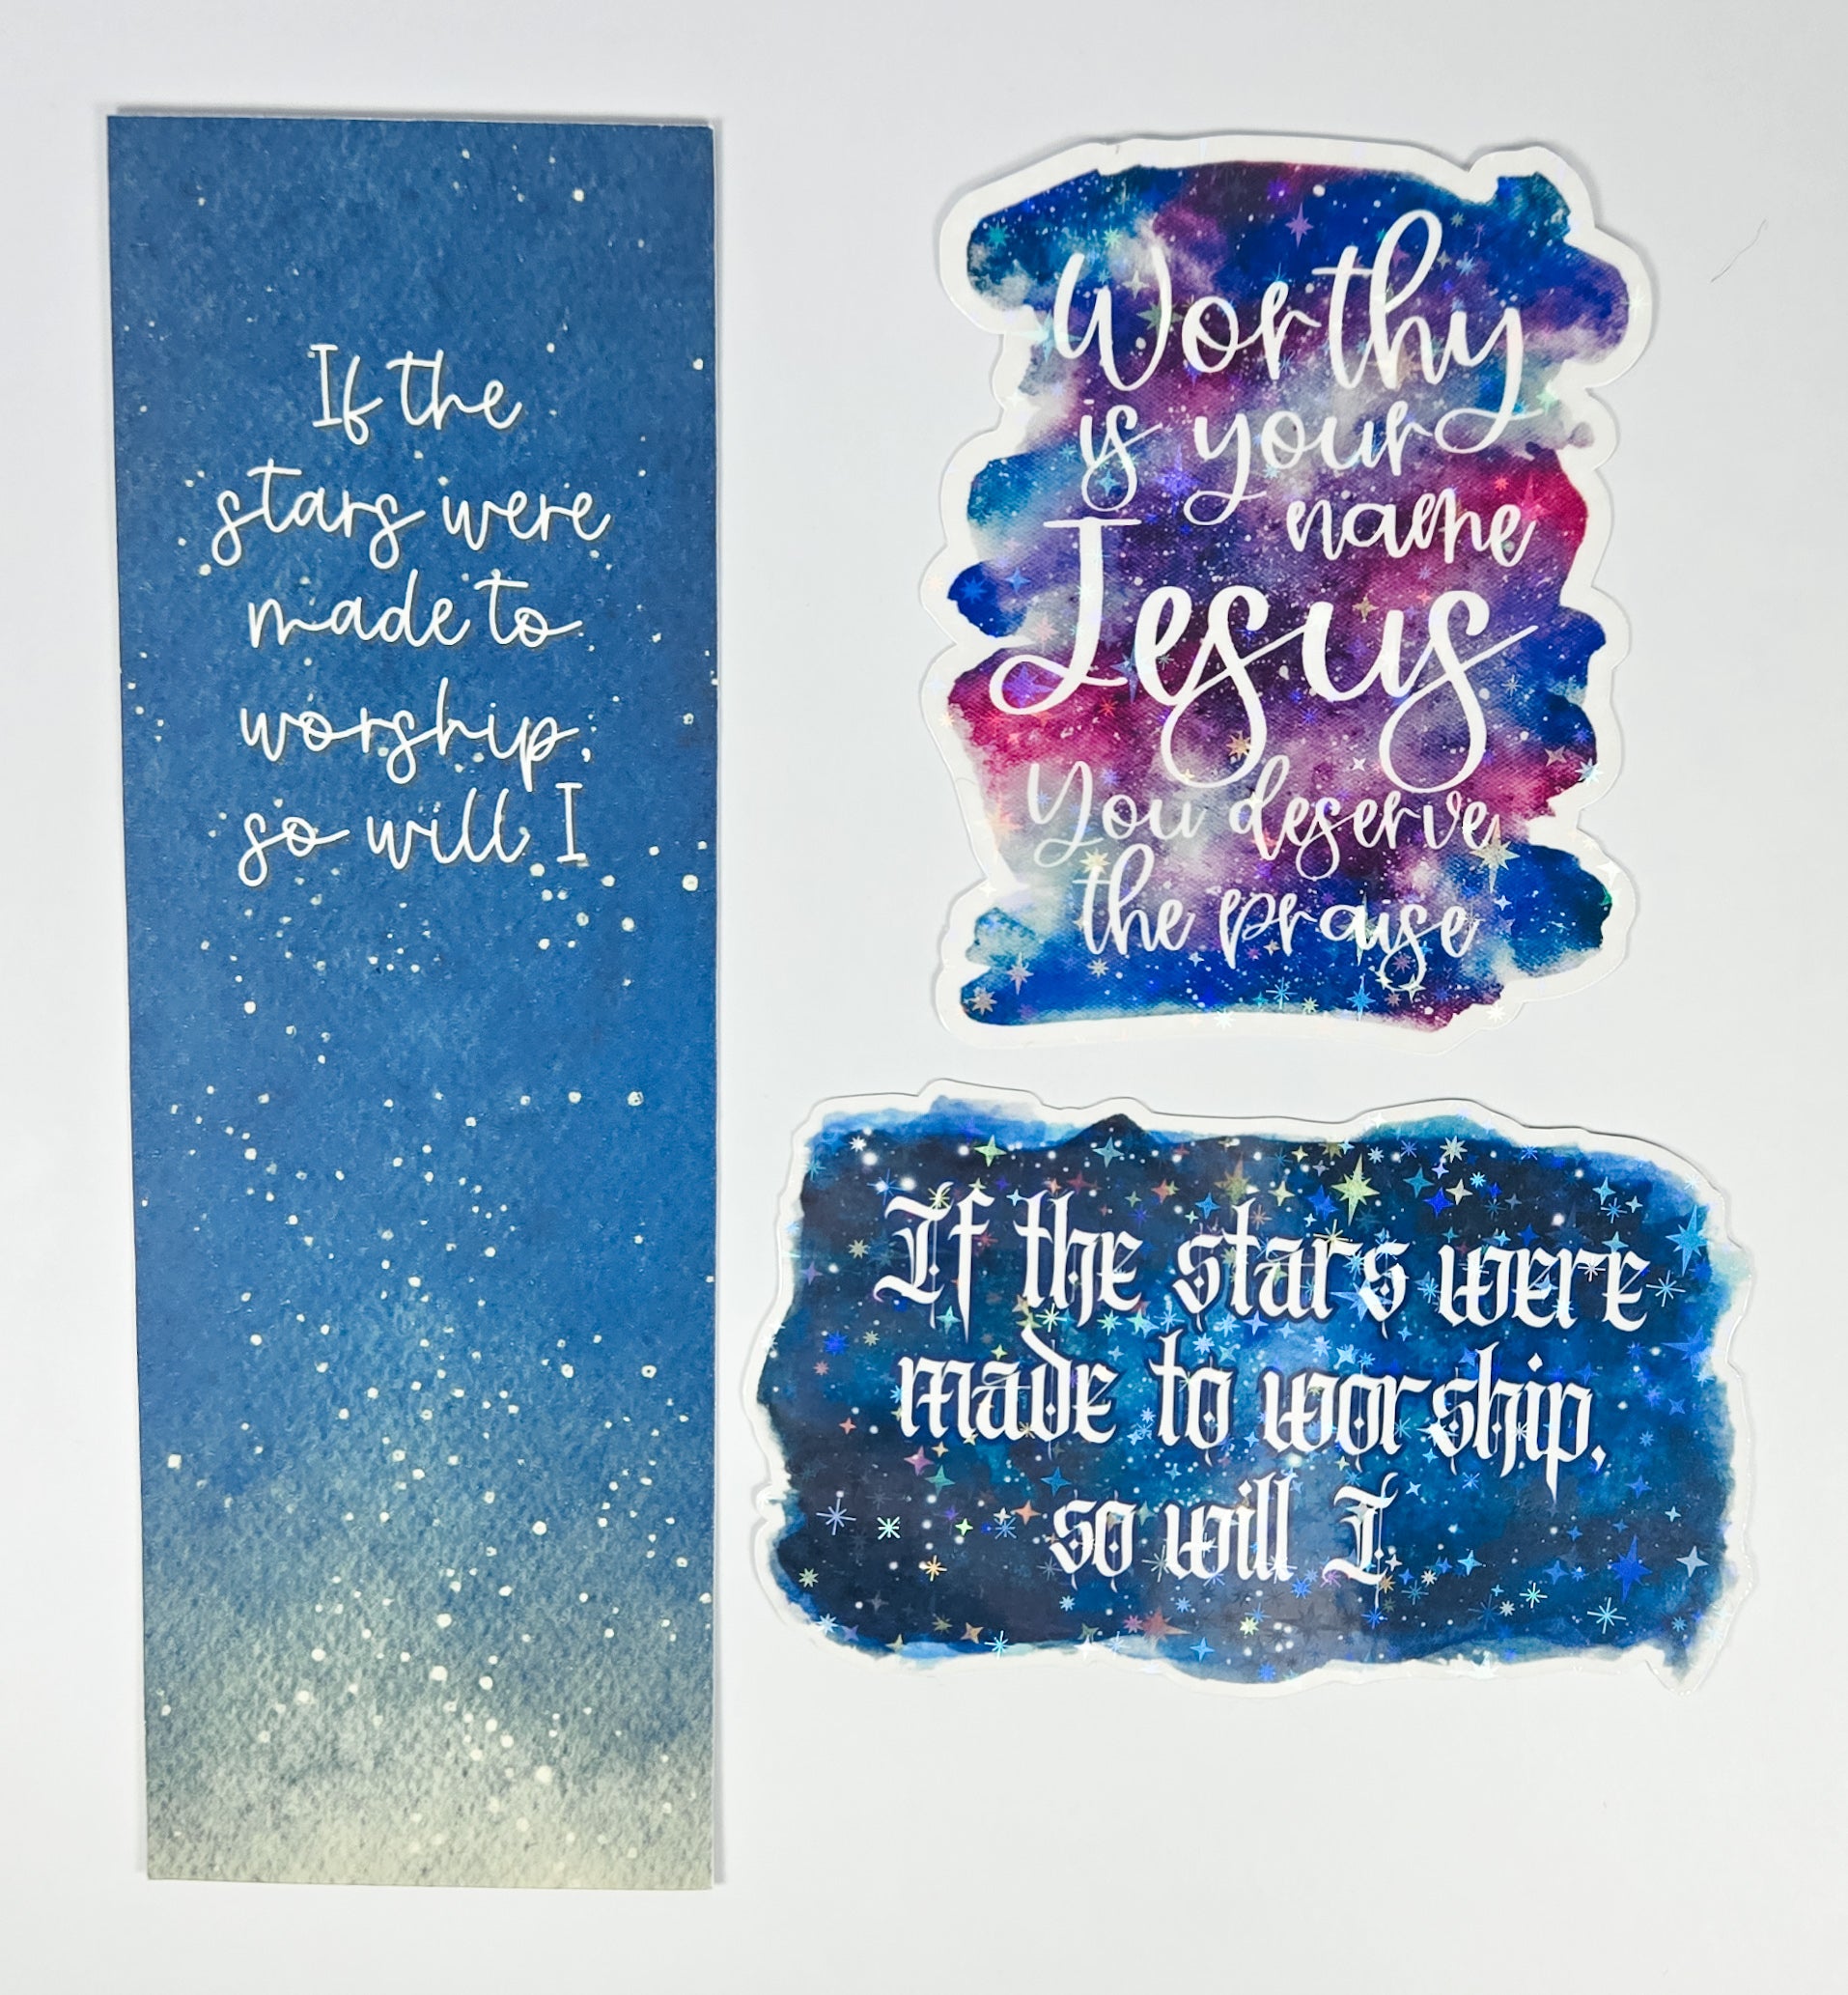 If the
stars were
made to
worship,
so will I
Worthy
is your
name
Jesus
You deserve
the praise
If the stars were
made to worship,
so will I